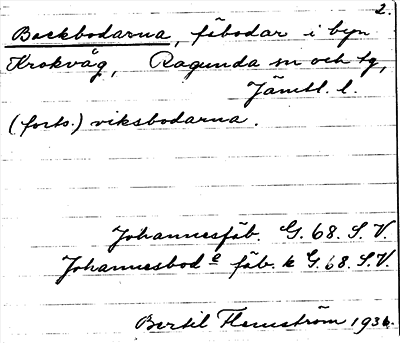 2.
Backbodarna, fäbodar i byn
Krokvåg, Ragunda sn och tg,
Jämtl. l.
(forts.) viksbodarna.
Johannesfäb. G. 68. S. V.
Johannesbod e fäb. k G. 68. S.V.
Bertil Flemström 1936.